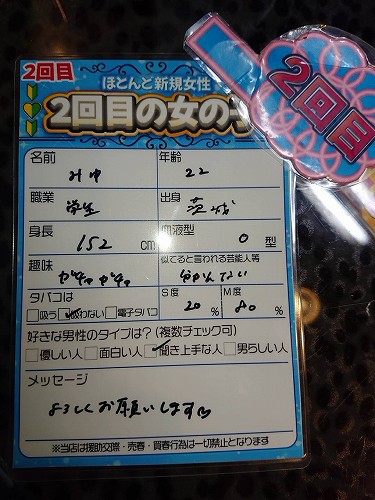 2回目
2回目
ほとんど新規女性
2回目の女の子
名前
みゆ
年齢
22
職業
学生
出身
茨城
身長
152 cm
血液型
O 型
趣味
ガチャガチャ
似てると言われる芸能人等
タバコは
吸う 吸わない 電子タバコ
S度
20 %
M度
80 %
好きな男性のタイプは?(複数チェック可)
優しい人 面白い人 聞き上手な人 男らしい人
メッセージ
よろしくお願いします
※当店は援助交際・売春・買春行為は一切禁止となります